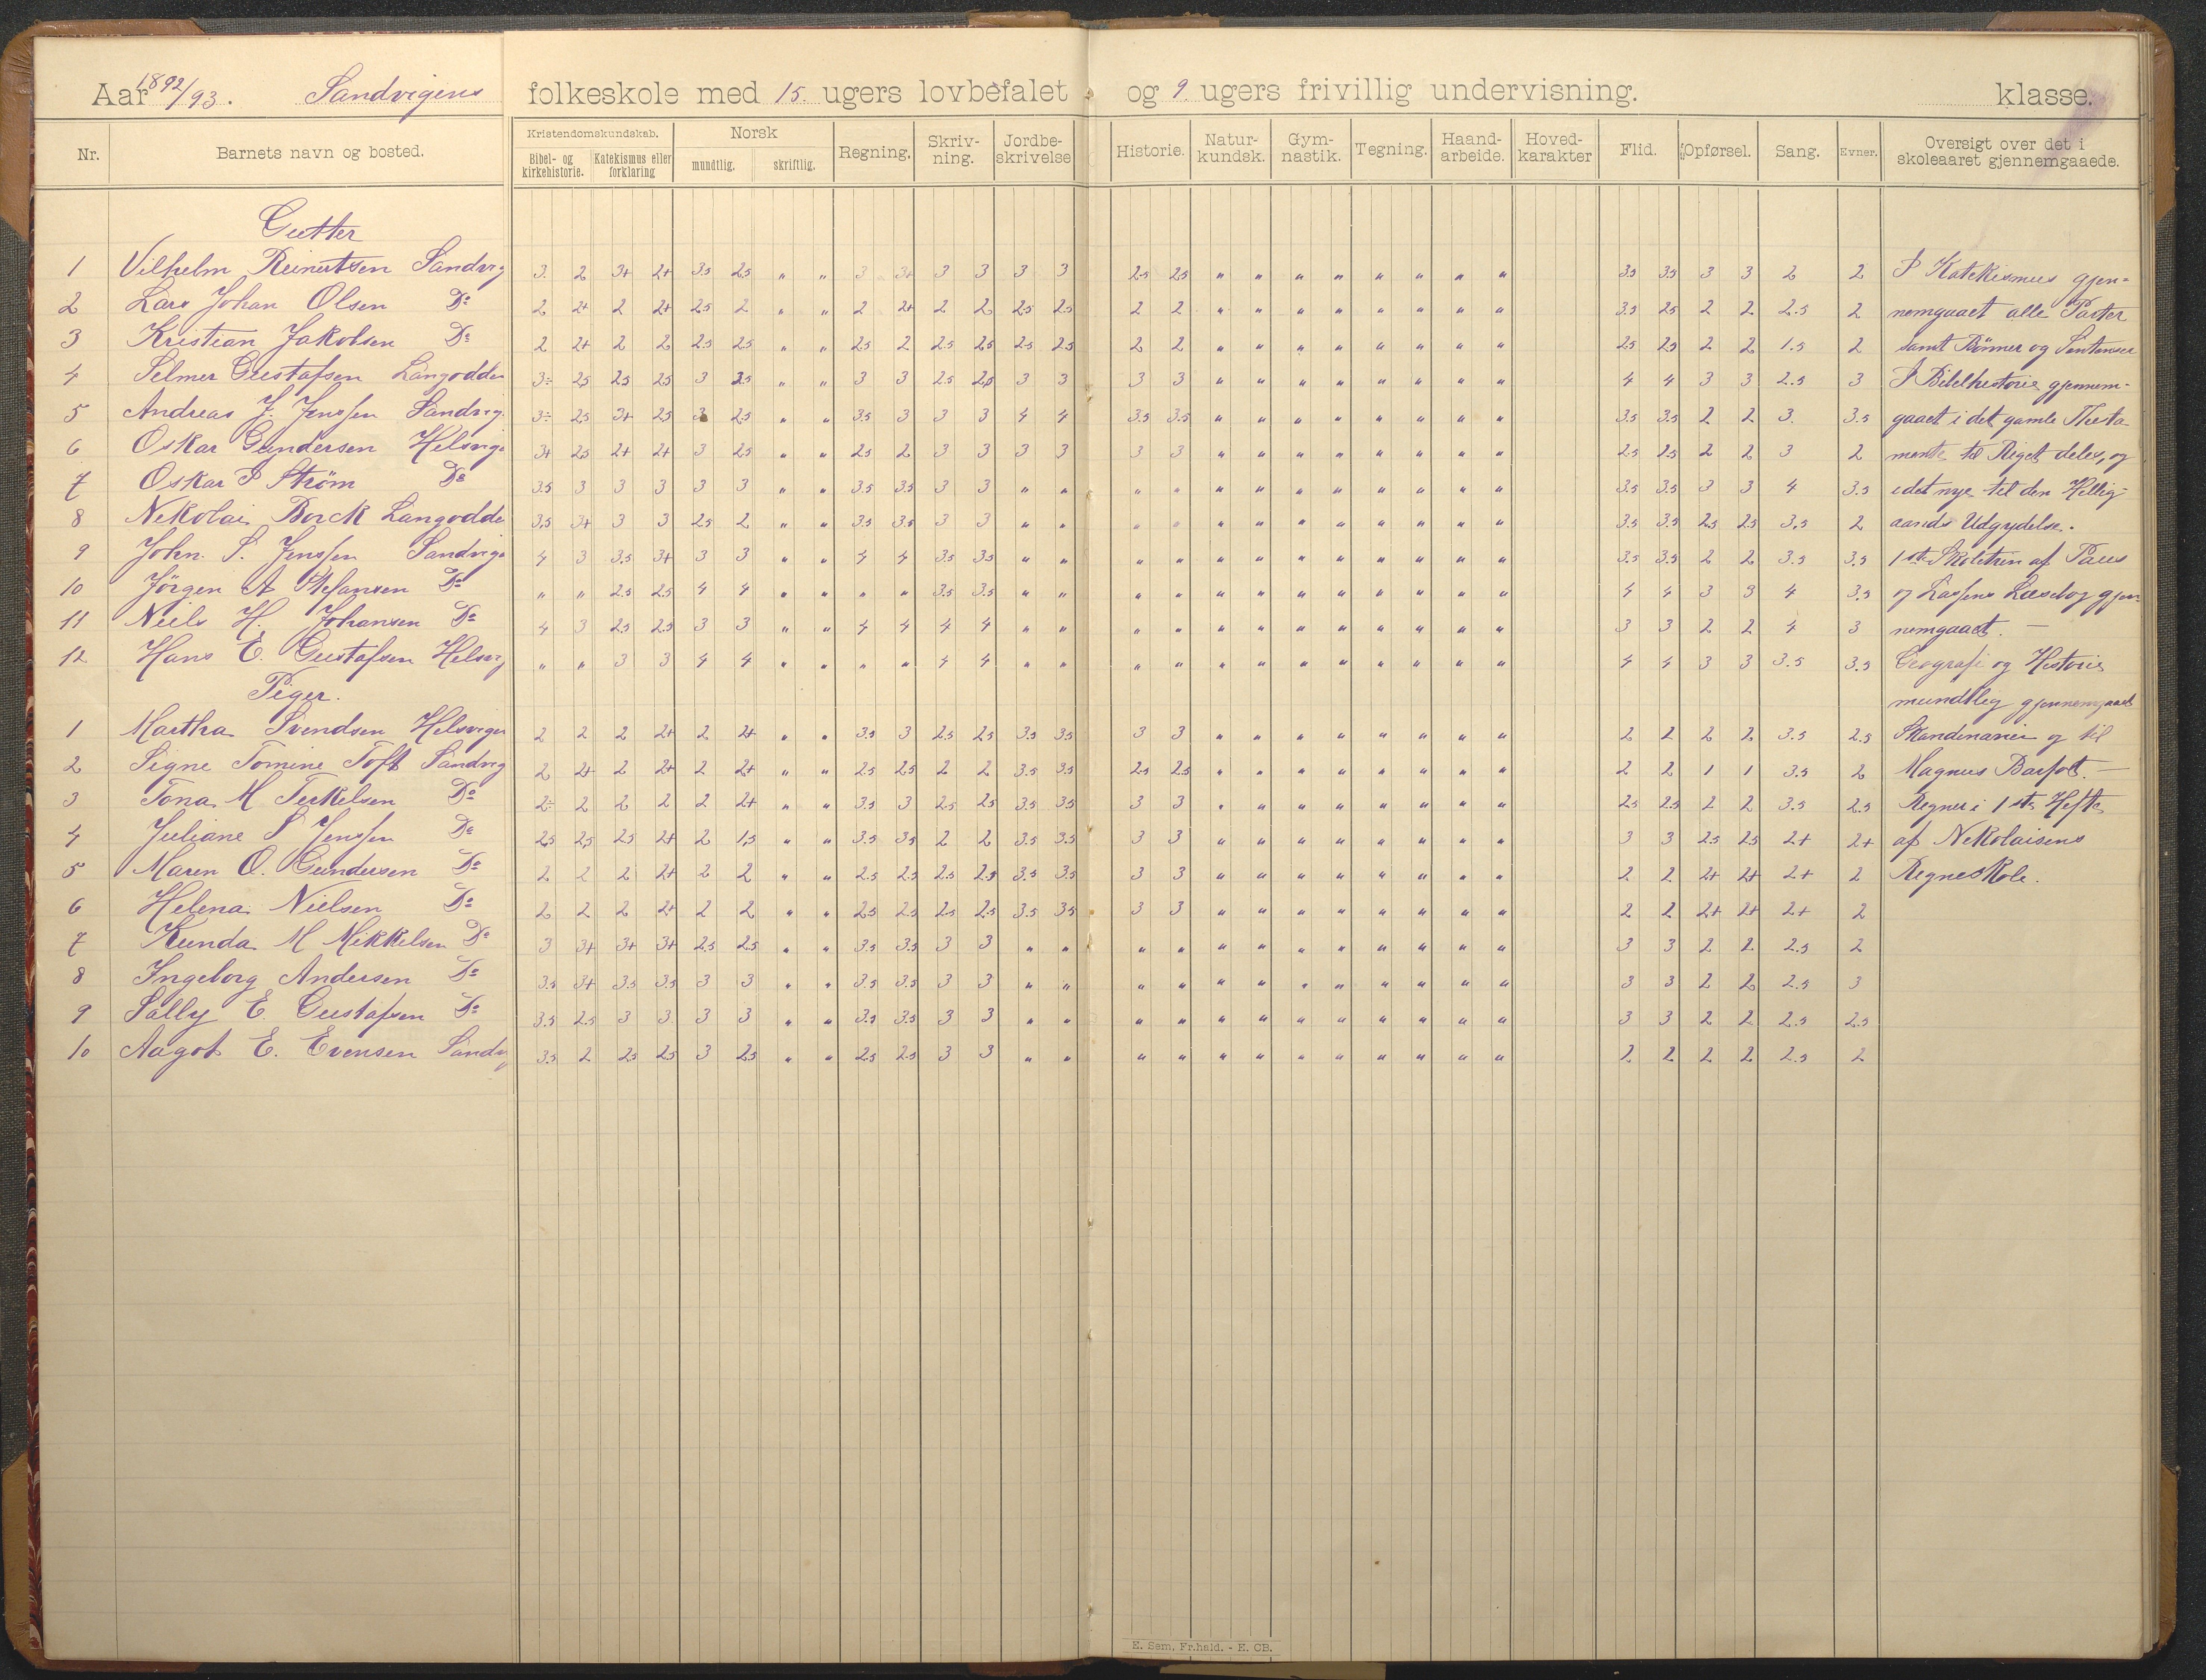 Aar 1892/93. Sandvigens folkeskole med 15. ugers lovbefalet og 9. ugers frivillig undervisning. klasse.
Nr. Barnets navn og bosted. Kristendomskundskab. Bibel- og kirkehistorie. Katekismus eller forklaring Norsk mundtlig. skriftlig. Regning. Skriv-ning. Jordbe-skrivelse Historie. Natur-kundsk. Gym-nastik. Tegning. Haand-arbeide. Hoved-karakter Flid. Opførsel. Sang. Evner. Oversigt over det i skoleaaret gjennemgaaede.
Gutter
1 Vilhelm Reinertsen Sandvig 3. 2 3+ 2+ 3.5 2.5 " " 3 3+ 3 3 3 3 2.5 2.5 " " " " " " " " 3.5 3.5 3 3 2 2 I Katekismus gjen=
2 Lars Johan Olsen Do 2 2+ 2 2+ 2.5 2 " " 2 2+ 2 2 2.5 2.5 2 2 " " " " " " " " 3.5 2.5 2 2 2.5 2 nemgaaet alle Parter
3 Kristian Jakobsen Do 2 2+ 2 2 2.5 2.5 " " 2.5 2 2.5 2.5 2.5 2.5 2 2 " " " " " " " " 2.5 2.5 2 2 1.5 2 samt Bønner og Sentenser
4 Selmer Gustafsen Langodden 3÷ 2.5 2.5 2.5 3 2.5 " " 3 3 2.5 2.5 3 3 3 3 " " " " " " " " 4 4 3 3 2.5 3 I Bibelhistorie gjennem-
5 Andreas J. Jenssen Sandvig. 3÷ 2.5 3+ 2.5 3 2.5 " " 3.5 3 3 3 4 4 3.5 3.5 " " " " " " " " 3.5 3.5 2 2 3. 3.5 gaaet i det gamle Thesta
6 Oskar Gundersen Helsvige 3+ 2.5 2+ 2+ 3 2.5 " " 2.5 2 3 3 3 3 3 3 " " " " " " " " 2.5 2.5 2 2 3 2 mente til Riget deles, og
7 Oskar P Strøm Do 3.5 3 3 3 3 3 " " 3.5 3.5 3 3 " " " " " " " " " " " " 3.5 3.5 3 3 4 3.5 i det nye til den Hellig-
8 Nikolai Borck Langodde 3.5 3+ 3 3 2.5 2 " " 3.5 3.5 3 3 " " " " " " " " " " " " 3.5 3.5 2.5 2.5 3.5 2 aands Udgydelse.
9 John. S. Jenssen Sandvige 4 3 3.5 3+ 3 3 " " 4 4 3.5 3.5 " " " " " " " " " " " " 3.5 3.5 2 2 3.5 3.5 1ste Skoletrin af Paus
10 Jørgen A Stefansen Do " " 2.5 2.5 4 4 " " " " 3.5 3.5 " " " " " " " " " " " " 4 4 3 3 4 3.5 og Lassens Læsebog gjen-
11 Niels H. Johansen Do 4 3 2.5 2.5 3 3 " " 4 4 4 4 " " " " " " " " " " " " 3 3 2 2 4 3 nemgaaet. —
12 Hans E. Gustafsen Helsvig " " 3 3 4 4 " " " " 4 4 " " " " " " " " " " " " 4 4 3 3 3.5 3.5 Geografi og Historie
Piger. mundtlig gjennemgaaet
1 Martha Svendsen Helsvigen 2 2 2 2+ 2 2+ " " 3.5 3 2.5 2.5 3.5 3.5 3 3 " " " " " " " " 2 2 2 2 3.5 2.5 Skandinavien og til
2 Signe Tomine Toft Sandvig 2 2+ 2 2+ 2 2+ " " 2.5 2.5 2 2 3.5 3.5 2.5 2.5 " " " " " " " " 2 2 1 1 3.5 2 Magnus Barfot. —
3 Tona M Terkelsen Do 2÷ 2 2 2 2 2+ " " 3.5 3 2.5 2.5 3.5 3.5 3 3 " " " " " " " " 2.5 2.5 2 2 3.5 2.5 Regnes i 1ste Hefte
4 Juliane S Jenssen Do 2.5 2.5 2.5 2+ 2 1.5 " " 3.5 3.5 2 2 3.5 3.5 3 3 " " " " " " " " 3 3 2.5 2.5 2+ 2+ af Nikolaisens
5 Maren O. Gundersen Do 2 2 2 2+ 2 2 " " 2.5 2.5 2.5 2.5 3.5 3.5 3 3 " " " " " " " " 2 2 2+ 2+ 2+ 2 Regneskole.
6 Helena Nielsen Do 2 2 2 2+ 2 2 " " 2.5 2.5 2.5 2.5 3.5 3.5 3 3 " " " " " " " " 2 2 2+ 2+ 2+ 2
7 Kunda M Mikkelsen Do 3 3+ 3+ 3+ 2.5 2.5 " " 3.5 3.5 3 3 " " " " " " " " " " " " 3 3 2 2 2.5 2
8 Ingeborg Andersen Do 3.5 3+ 3.5 3.5 3 3 " " 3.5 3.5 3 3 " " " " " " " " " " " " 3 3 2 2 2.5 3
9 Sally E. Gustafsen Do 3.5 2.5 3 3 3 3 " " 3.5 3.5 3 3 " " " " " " " " " " " " 3 3 2 2 2.5 2.5
10 Aagot E. Evensen Sandv 3.5 2 2.5 2.5 3 2.5 " " 2.5 2.5 3 3 " " " " " " " " " " " " 2 2 2 2 2.5 2
E. Sem, Fr.hald. - E. CB.